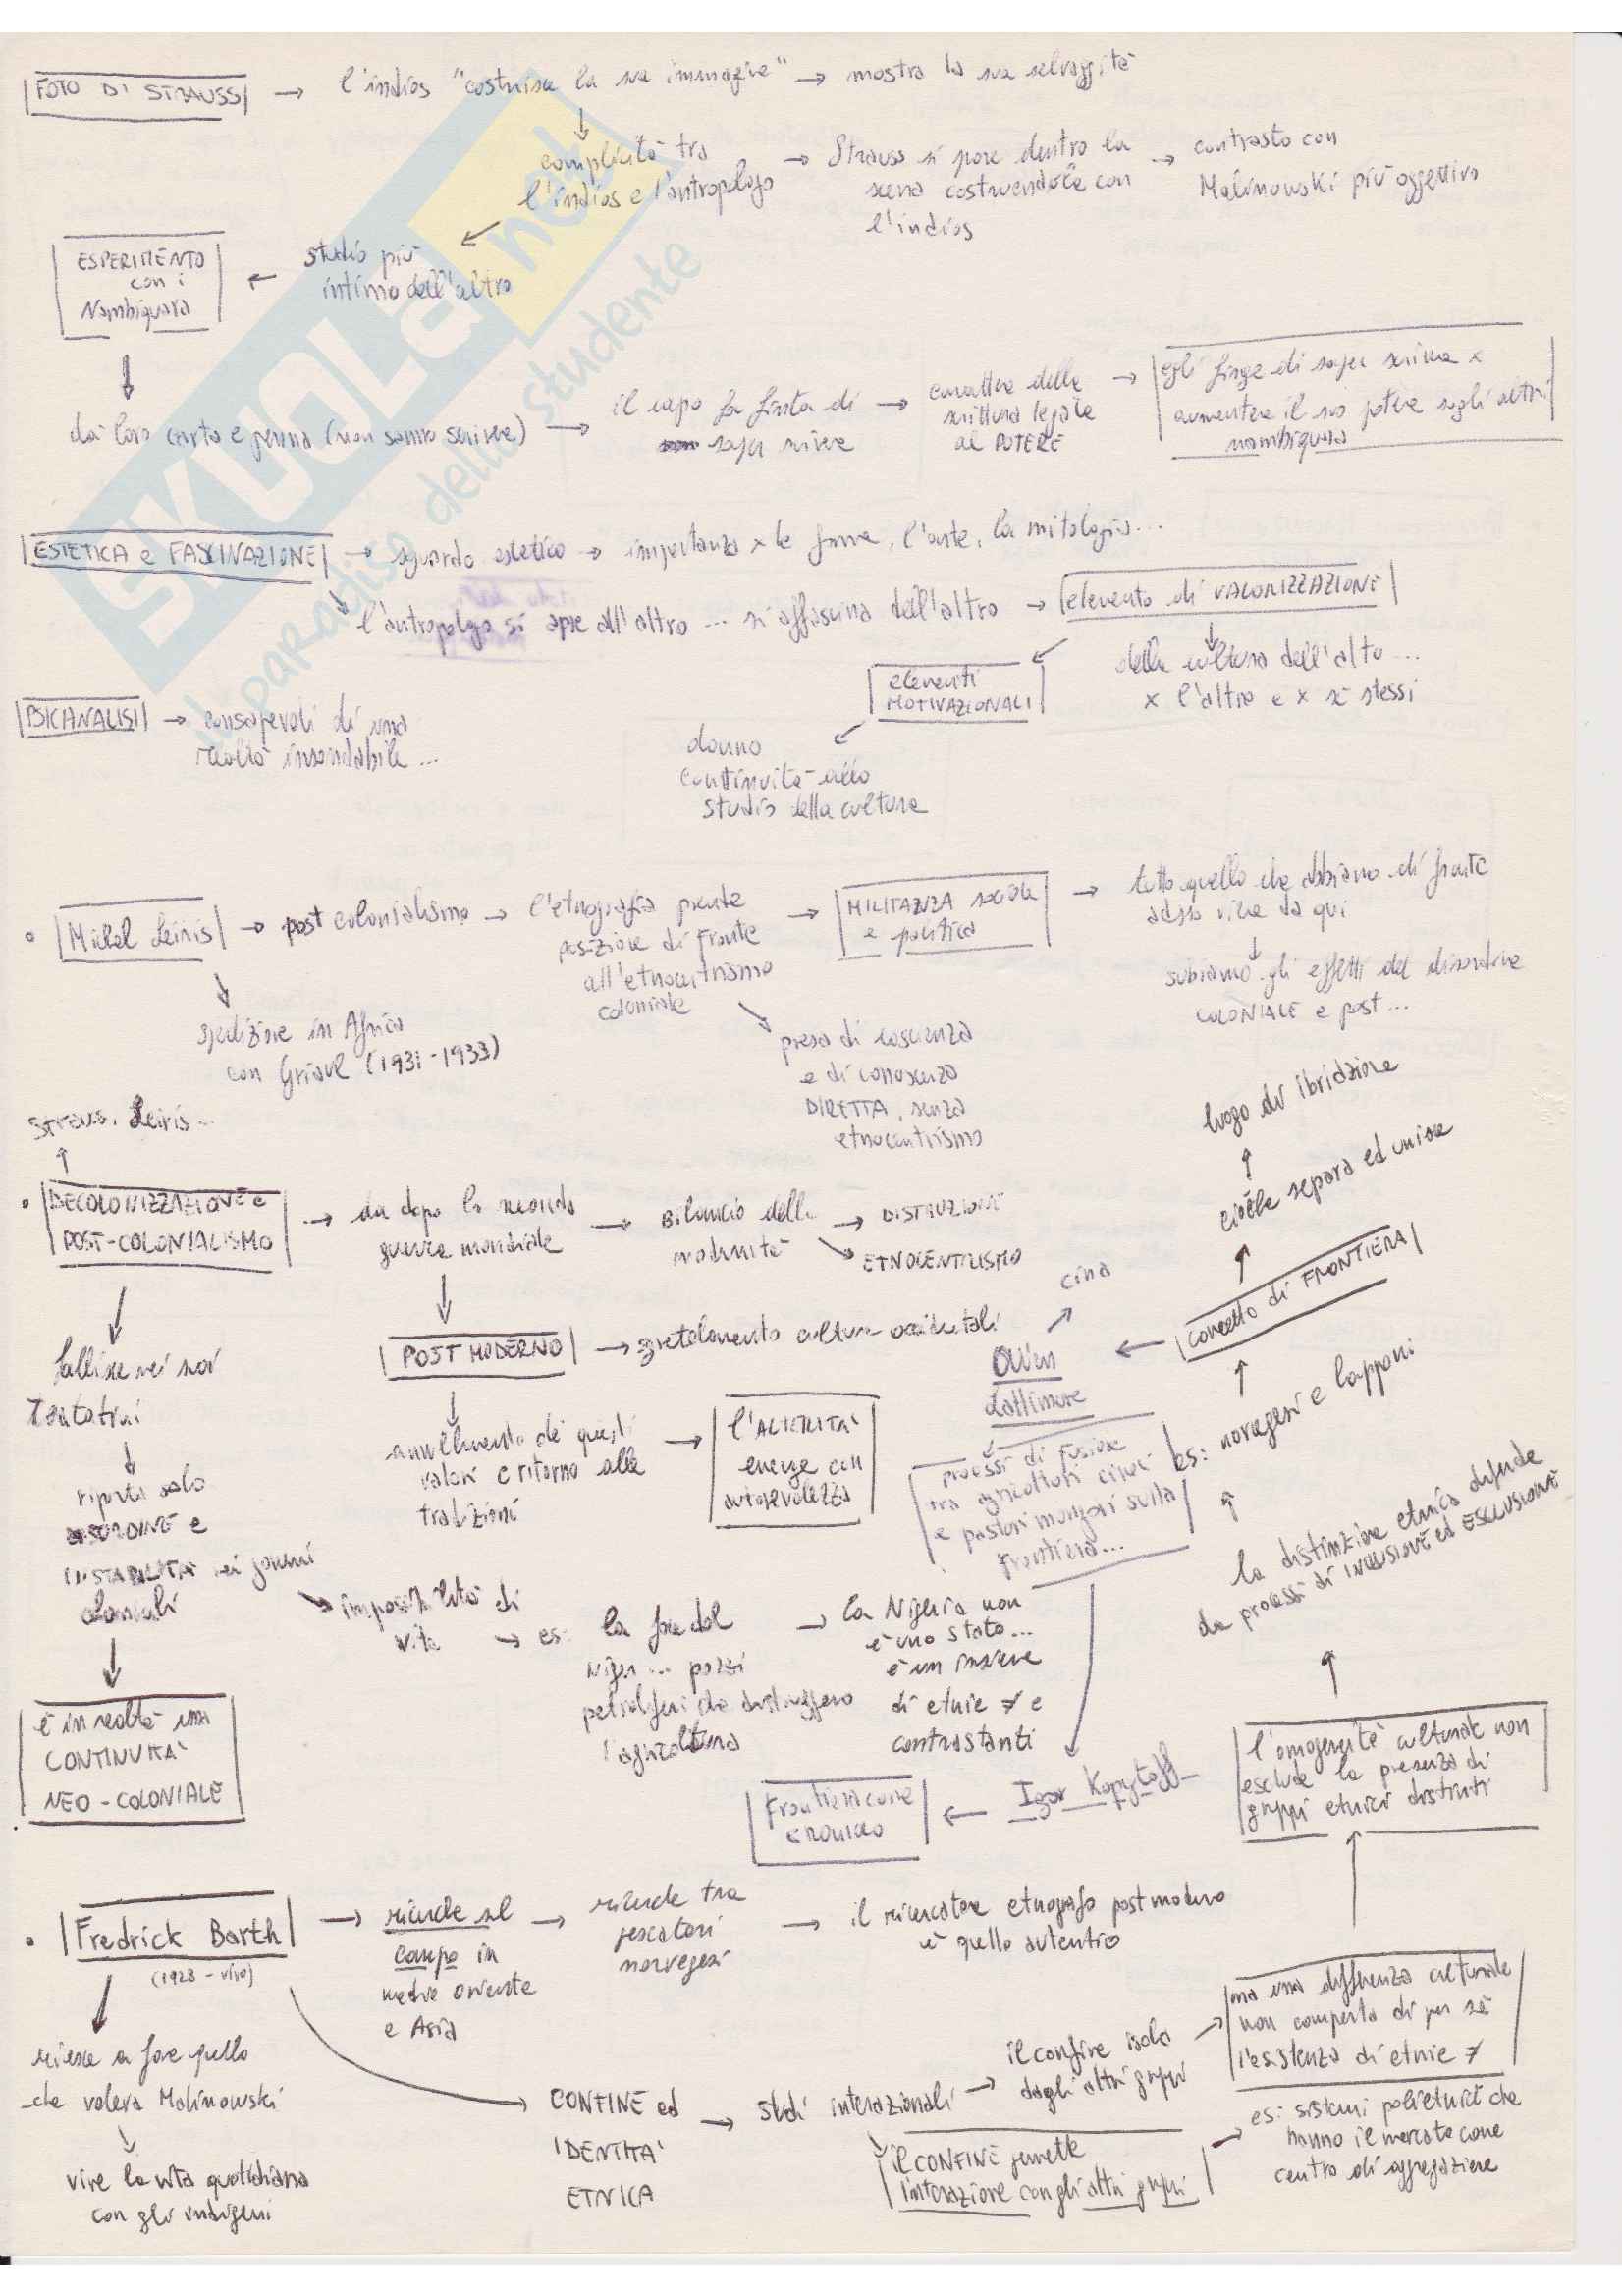 FOTO DI STRAUSS → l'indios "costruisce la sua immagine" → mostra la sua selvaggità
↓
complicità tra
l'indios e l'antropologo
→ Strauss si pone dentro la
scena costruendola con
l'indios
→ contrasto con
Malinowski più oggettivo
studio più
intimo dell'altro
←
ESPERIMENTO
con i
Nambiquara
↓
dà loro carta e penna (non sanno scrivere) →
il capo fa finta di
saper scrivere
→ carattere della
scrittura legate
al POTERE
→ egli finge di saper scrivere x
aumentare il suo potere sugli altri
nambiquara
ESTETICA e FASCINAZIONE → sguardo estetico → importanza x le forme, l'arte, la mitologia...
l'antropologo si apre all'altro ... si affascina dell'altro → elemento di VALORIZZAZIONE
della cultura dell'altro ...
x l'altro e x sè stessi
elementi
MOTIVAZIONALI
danno
continuità allo
studio della cultura
PSICANALISI → consapevoli di una
realtà insondabile ...
SKUOLA.net
il paradiso dello studente
• Michel Leiris → post colonialismo → l'etnografia prende
posizione di fronte
all'etnocentrismo
coloniale
→ MILITANZA sociale
e politica
→ tutto quello che abbiamo di fronte
adesso viene da qui
↓
subiamo gli effetti del disordine
COLONIALE e post...
spedizione in Africa
con Griaul (1931-1933)
presa di coscienza
e di conoscenza
DIRETTA, senza
etnocentrismo
Strauss, Leiris...
↑
• DECOLONIZZAZIONE e
POST-COLONIALISMO
→ da dopo la seconda
guerra mondiale
→ Bilancio della
modernità
→ DISTRUZIONE
ETNOCENTRISMO
↓
fallisce nei suoi
Tentativi
↓
riporta solo
DISORDINE e
INSTABILITÀ nei
coloniali
↓
è in realtà una
CONTINUITÀ
NEO-COLONIALE
impossibilità di
vita
→ es: la foce del
Niger ... pozzi
petroliferi che distruggono
l'agricoltura
→ la Nigeria non
è uno stato...
è un insieme
di etnie ≠ e
contrastanti
POST MODERNO → sgretolamento culture occidentali
↓
annullamento di questi
valori e ritorno alle
tradizioni
→ l'ALTERITÀ
emerge con
autorevolezza
luogo di ibridazione
↑
cioè che separa ed unisce
↑
concetto di FRONTIERA
←
Owen
Lattimore
cina
processi di fusione
tra agricoltori cinesi
e pastori mongoli sulla
frontiera...
↓
Igor Kopytoff
←
Frontiera come
crogiuolo
es: norvegesi e lapponi
la distinzione etnica dipende
da processi di INCLUSIONE ed ESCLUSIONE
↑
l'omogeneità culturale non
esclude la presenza di
gruppi etnici distinti
• Fredrick Barth
(1928 - vivo)
→ ricerche sul
campo in
medio oriente
e Asia
→ ricerche tra
pescatori
norvegesi
→ il ricercatore etnografo postmoderno
è quello autentico
riesce a fare quello
che voleva Malinowski
↓
vive la vita quotidiana
con gli indigeni
CONFINE ed
IDENTITÀ
ETNICA
→ studi interazionali → il confine isola
dagli altri gruppi
→ ma una differenza culturale
non comporta di per sè
l'esistenza di etnie ≠
il CONFINE permette
l'interazione con gli altri gruppi
→ es: sistemi polietnici che
hanno il mercato come
centro di aggregazione